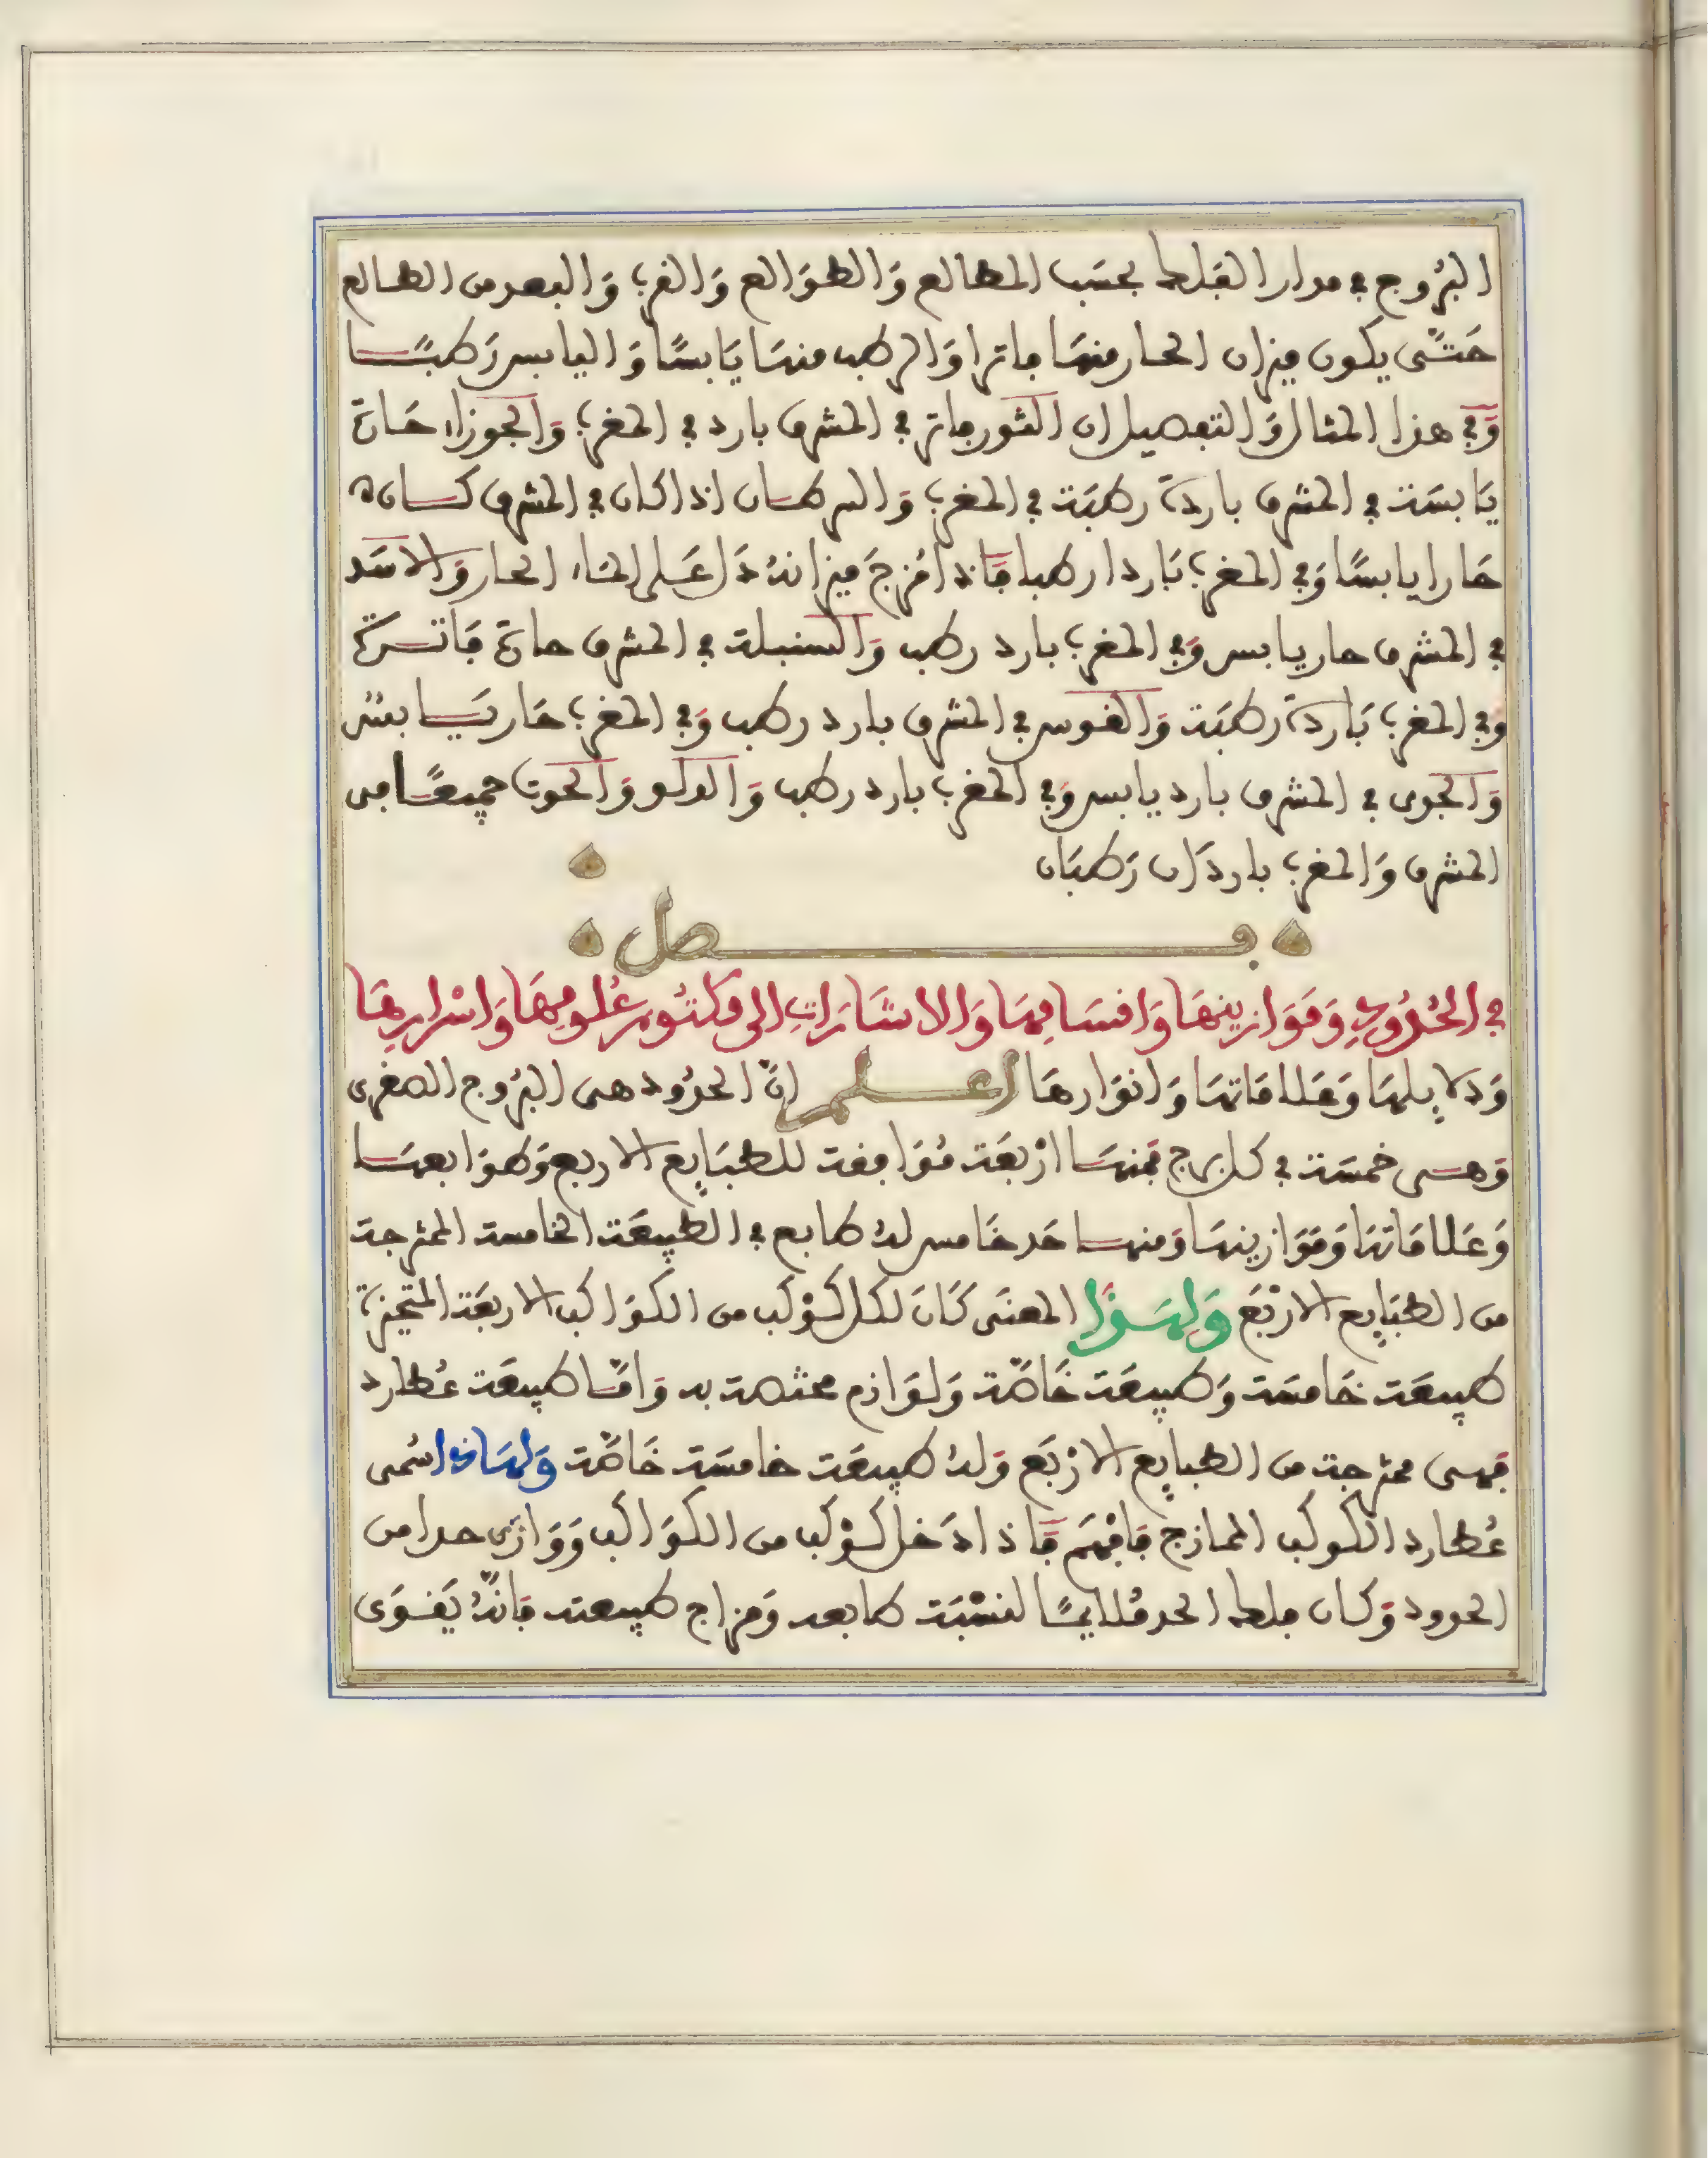 البُرُوج في مدار الفَلك بحسَب المطالع وَالطوَالع وَالقرب وَالبعد من الطالع
حَتَّى يكون ميزان الحار منهَا فاترا وَالرطب منهَا يَابسًا وَاليابس رَطبًا
وَفي هذا المثال وَالتفصيل ان الثور فاتر في المشرق بارد في المغرب وَالجوزاء حَارة
يَابسَة في المشرق باردَة رطبَة في المغرب وَالسرطان اذا كان في المشرق كان
حَارا يابسًا وَفي المغرب بَاردا رطبا فَاذا مُزجَ ميزانهُ دَل عَلى المَاء الحار وَالاسَد
في المشرق حار يابس وَفي المغرب بارد رطب وَالسنبلة في المشرق حارة فَاترة
وَفي المغرب بَاردَة رطبَة وَالقوس في المشرق بارد رطب وَفي المغرب حَار يَابسٌ
وَالجدى في المشرق بارد يابس وَفي المغرب بارد رطب وَالدلو وَالحوت جميعًا في
المشرق وَالمغرب باردَان رَطبَان
فصل
في الحُدُودِ وَمَوَازينهَا وَاقسَامِهَا وَالاشَارَاتِ الى مكتُومِ عُلومِهَا وَاسْرارِهَا
وَدلايلهَا وَعَلامَاتهَا وَانوَارهَا اعلم انَّ الحدُود هى البُرُوج الصغرى
وَهى خمسَة في كل برج فمنهَا ارْبعَة مُوَافقة للطبَايع الاربع وَطوَابعهَا
وَعَلامَاتهَا وَمَوَازينهَا وَمنهَا حَد خَامس لهُ طابع في الطبيعَة الخامسة الممتزجة
من الطبَايع الارْبَع وَلهَذَا المعنَى كَانَ لكل كَوْكب من الكوَاكب الاربعَة المتحيزَة
طبيعَة خَامسَة وَطبيعَة خَاصَّة وَلوَازم مختصة به وَامَّا طبيعَة عُطارد
فهى ممتزجة من الطبايع الارْبَع وَلهُ طبيعَة خامسَة خَاصَّة وَلهَاذا سُمى
عُطارد الكوكب الممازج فَافهَم فَاذا دَخل كَوْكب من الكوَاكب وَوَازى حدا من
الحدود وَكان فلك الحد مُلايمًا لنسْبَة طابعه وَمزاج طبيعته فانَّهُ يَقوَى